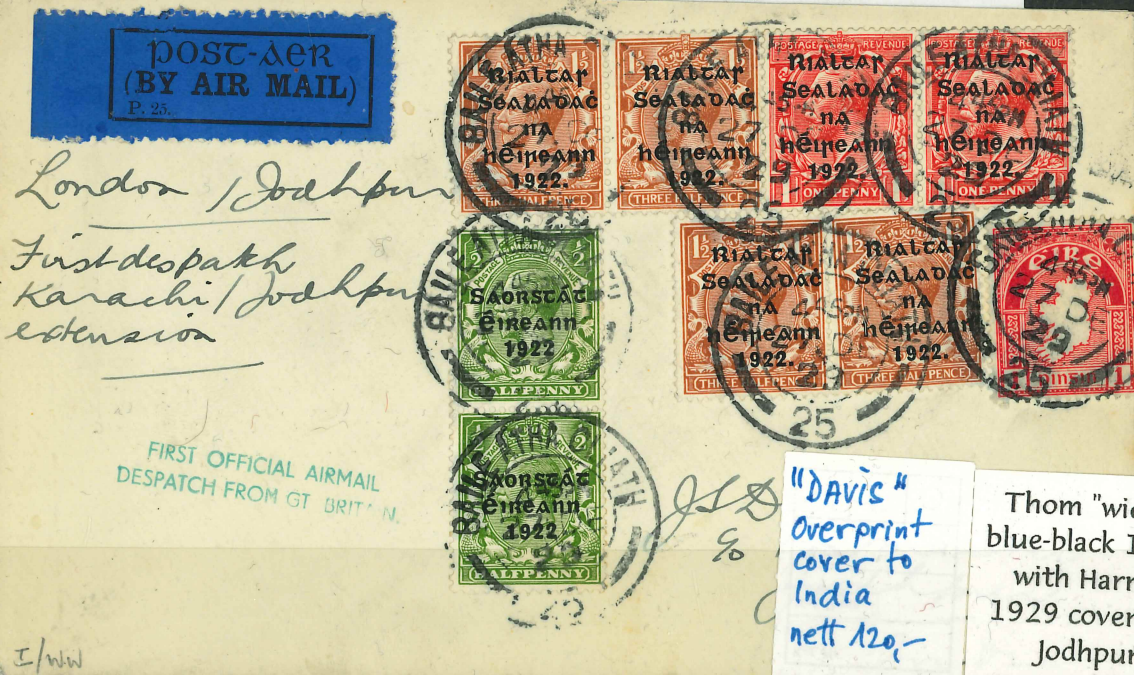 POST-AER
(BY AIR MAIL)
P. 25.
London / Jodhpur
First despatch
Karachi / Jodhpur
extension
FIRST OFFICIAL AIRMAIL
DESPATCH FROM GT BRITAIN.
I/WW
Rialtas
Sealadaċ
na
hÉireann
1922.
THREE HALFPENCE
Rialtas
Sealadaċ
na
hÉireann
1922.
THREE HALFPENCE
POSTAGE REVENUE
Rialtas
Sealadaċ
na
hÉireann
1922.
ONE PENNY
POSTAGE REVENUE
Rialtas
Sealadaċ
na
hÉireann
1922.
ONE PENNY
Rialtas
Sealadaċ
na
hÉireann
1922.
THREE HALFPENCE
Rialtas
Sealadaċ
na
hÉireann
1922.
THREE HALFPENCE
ÉIRE
Saorstát
Éireann
1922
HALFPENNY
Saorstát
Éireann
1922
HALFPENNY
BAILE ATHA CLIATH
29
25
J S D
c/o
"DAVIS"
Overprint
cover to
India
nett 120,-
Thom "wi
blue-black
with Harr
1929 cover
Jodhpur